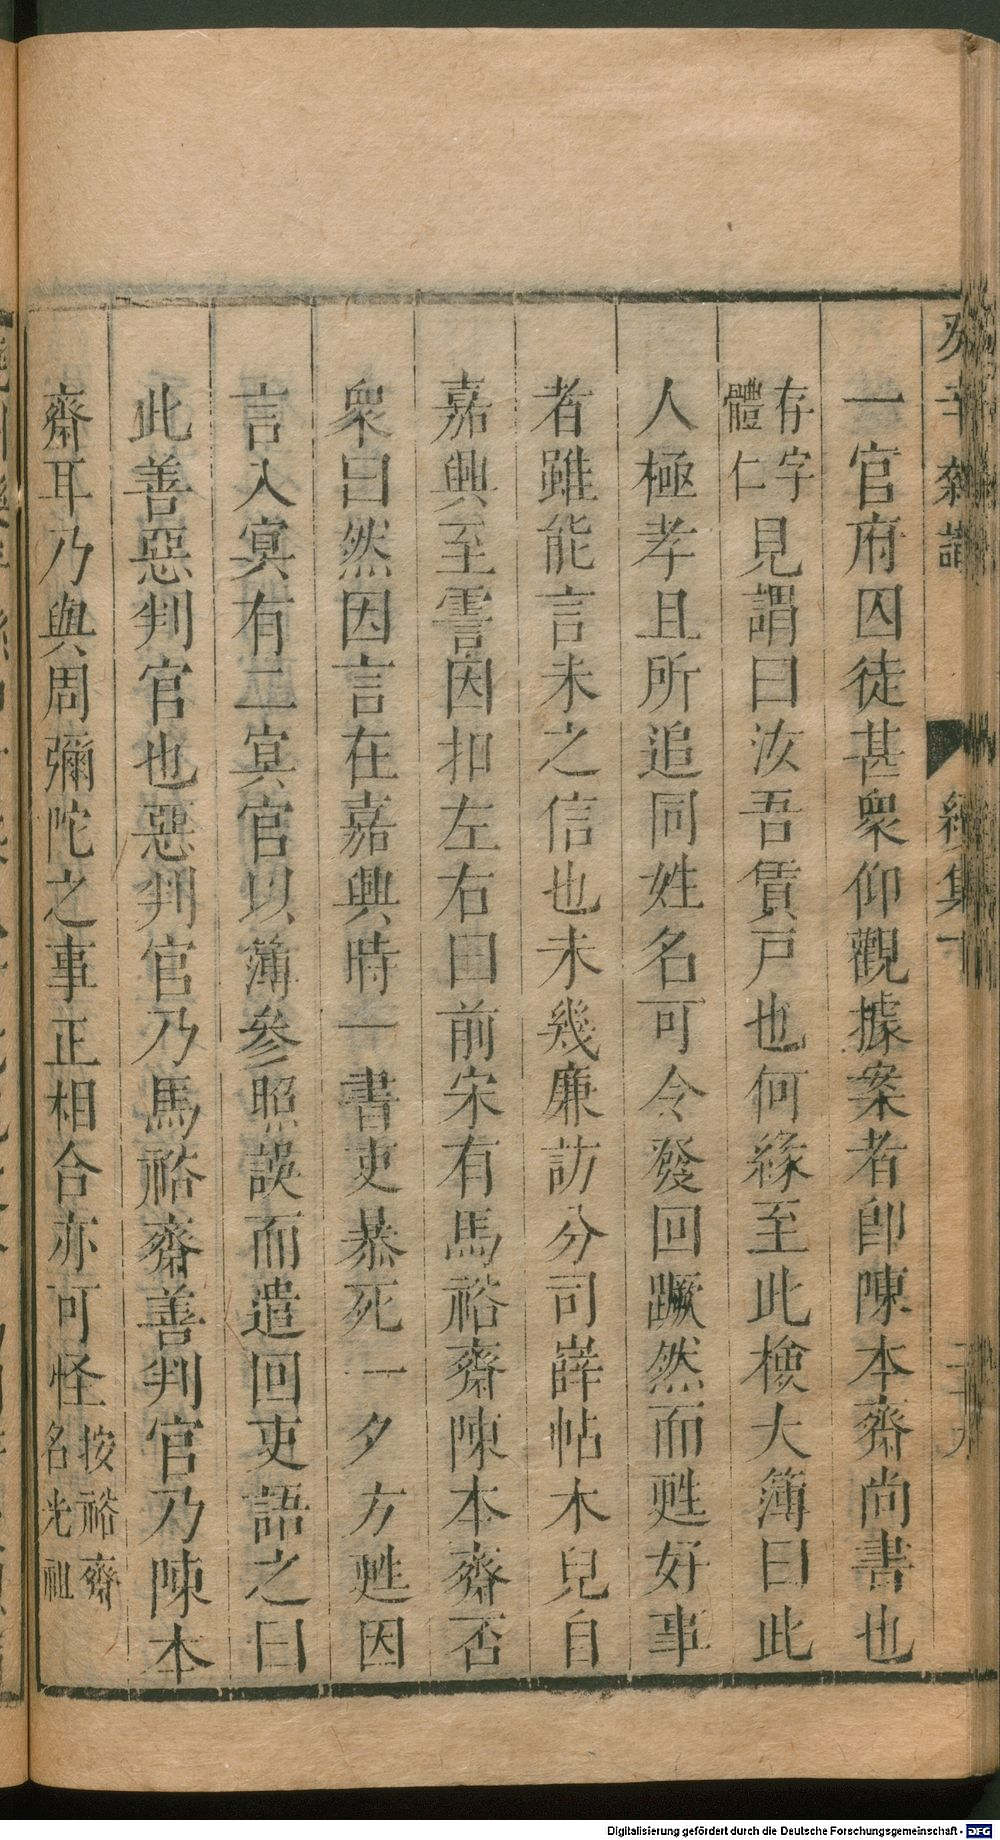 癸辛雜識
續集下
一官府囚徒甚衆仰觀據案者卽陳本齋尚書也
存字體仁見謂曰汝吾賃戸也何緣至此檢大簿曰此
人極孝且所追同姓名可令發回蹶然而甦好事
者雖能言未之信也未幾廉訪分司嶭帖木兒自
嘉興至霅因扣左右曰前宋有馬裕齋陳本齋否
衆曰然因言在嘉興時一書吏暴死一夕方甦因
言入冥有二冥官以簿參照誤而遣回吏語之曰
此善惡判官也惡判官乃馬裕齋善判官乃陳本
齋耳乃與周彌陀之事正相合亦可怪按裕齋名光祖
Digitalisierung gefördert durch die Deutsche Forschungsgemeinschaft - DFG